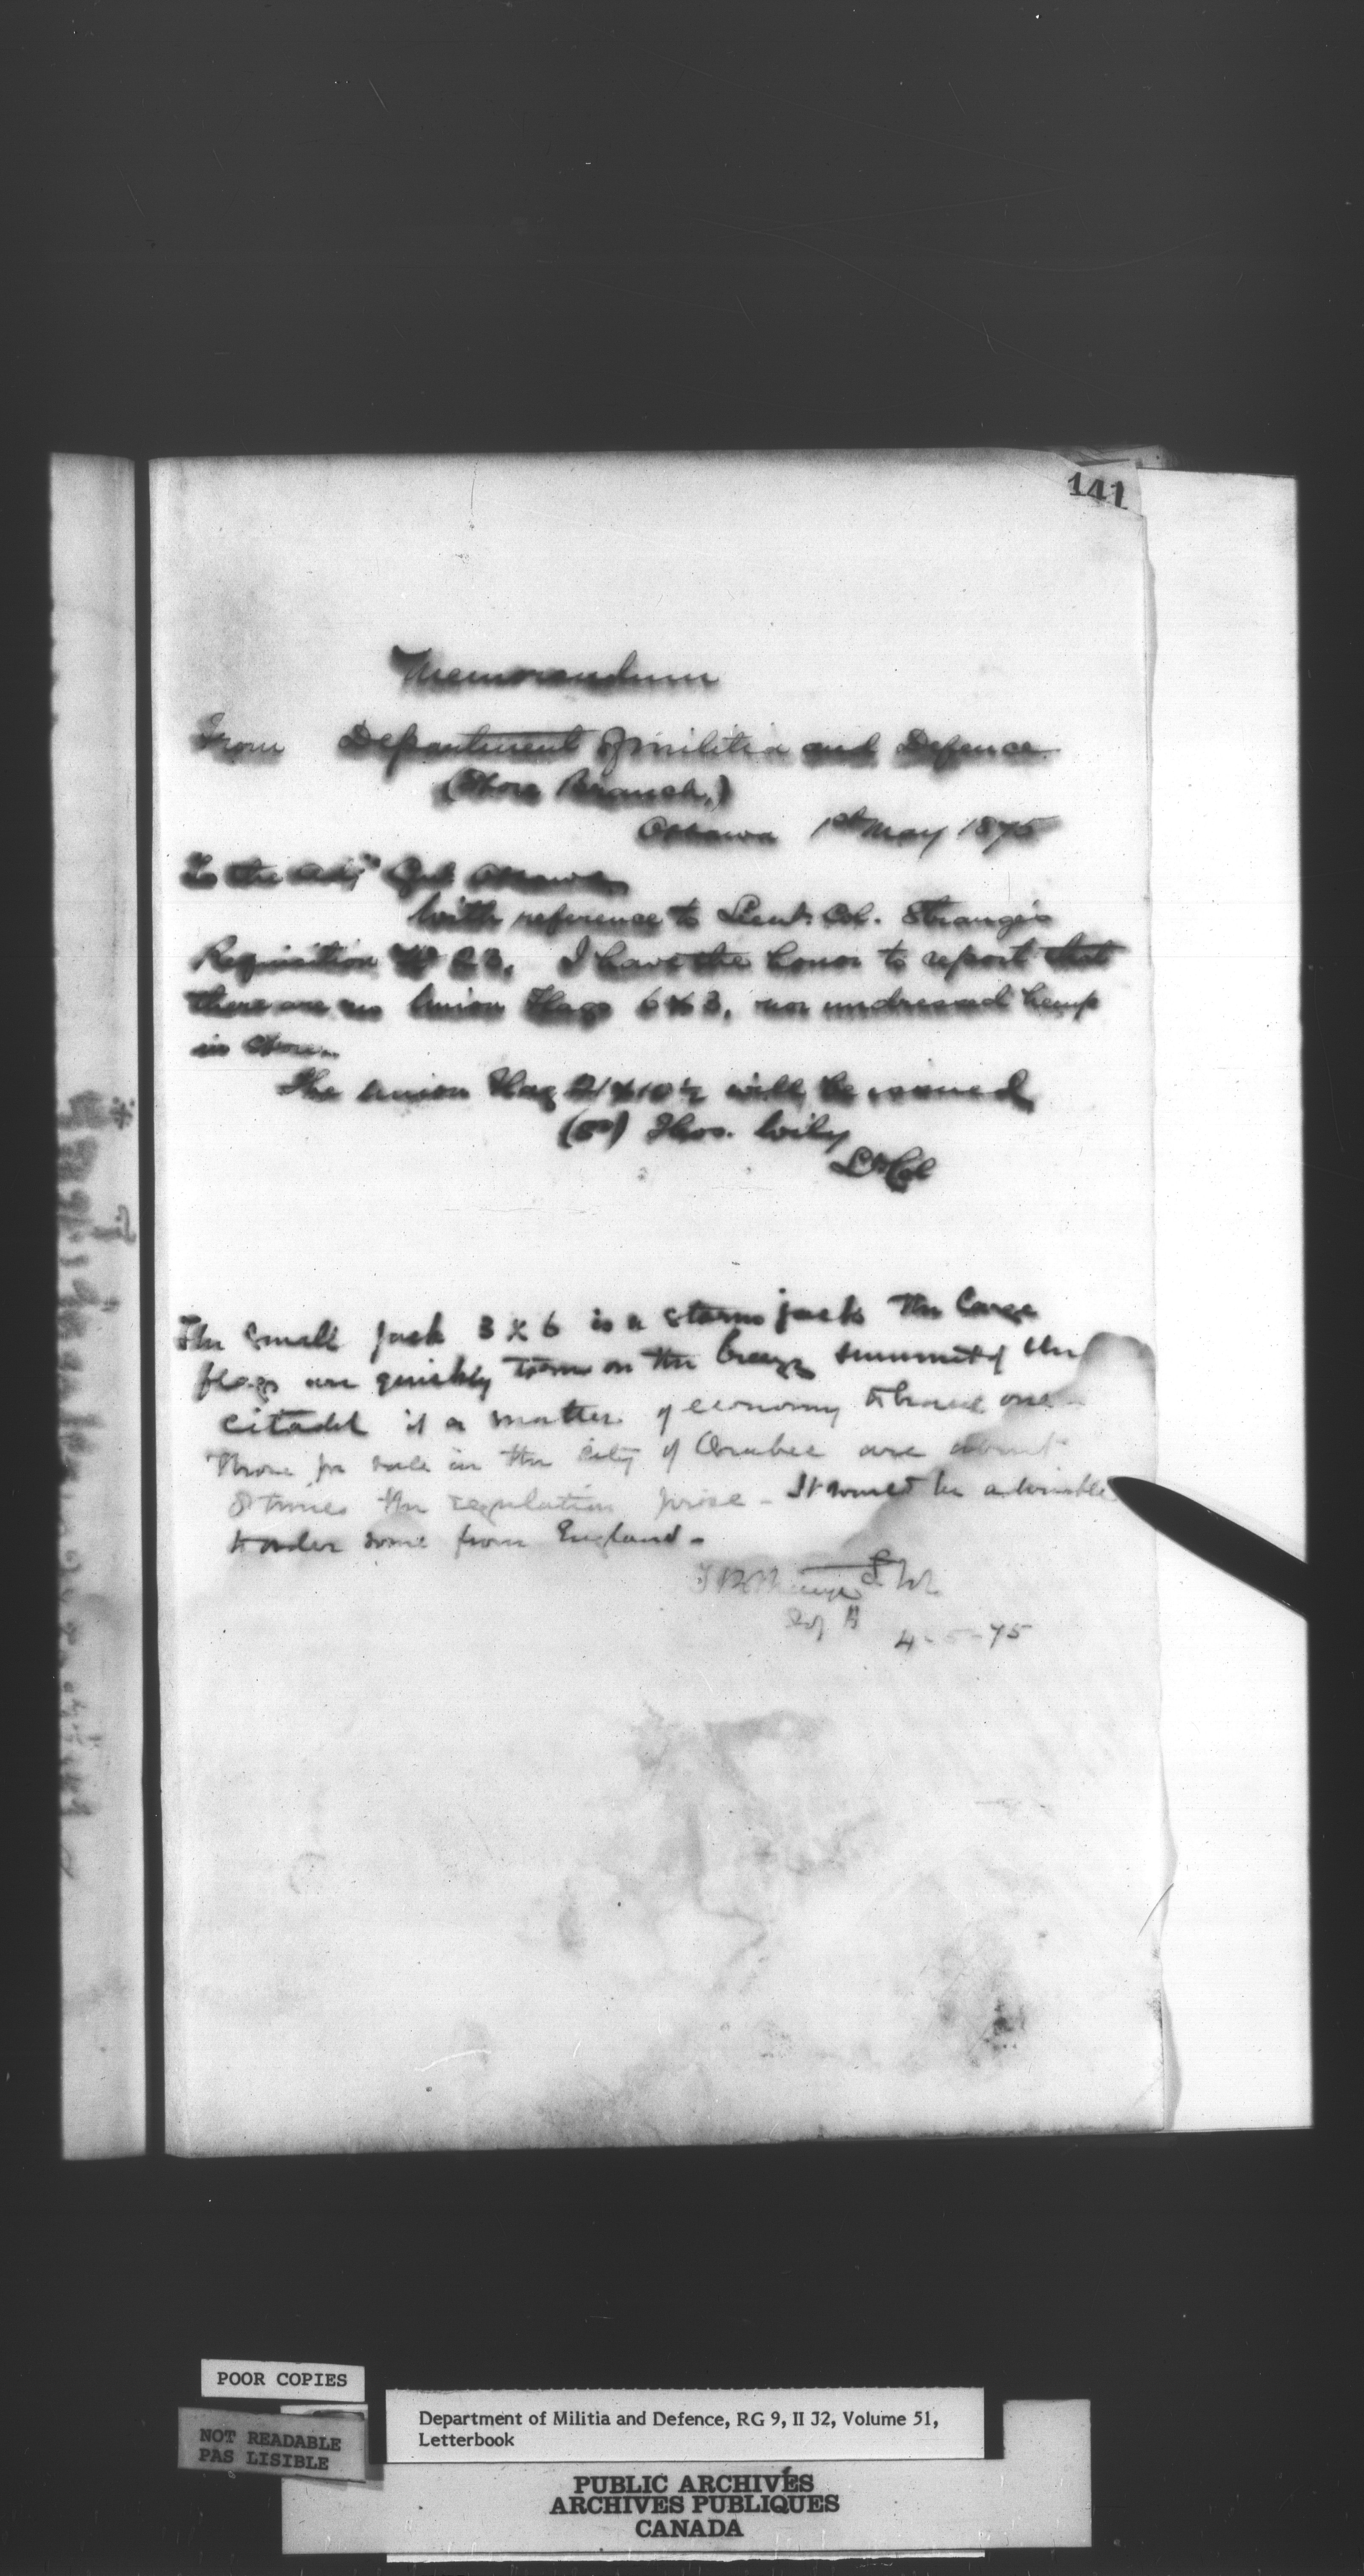 141
Memorandum
From Department of Militia and Defence
(Store Branch,)
Ottawa 1st May 1875
To the Adjt Genl Ottawa
With reference to Lieut. Col. Strange's
Requisition I have the honor to report that
there are no Union Flags 6 x 3, nor undressed hemp
in Store.
The Union Flag 21 x 10 ½ will be issued
(sd) Thos. Wily
Lt Col
The small jack 3 x 6 is a storm jack The large
flags are quickly torn on the breezy summit of the
citadel it is a matter of economy to have one -
Those for sale in the city of Quebec are about
times the regulation price - It would be advisable
to order some from England -
T B Strange Lt Col
4-5-75
POOR COPIES
NOT READABLE
PAS LISIBLE
Department of Militia and Defence, RG 9, II J2, Volume 51,
Letterbook
PUBLIC ARCHIVES
ARCHIVES PUBLIQUES
CANADA